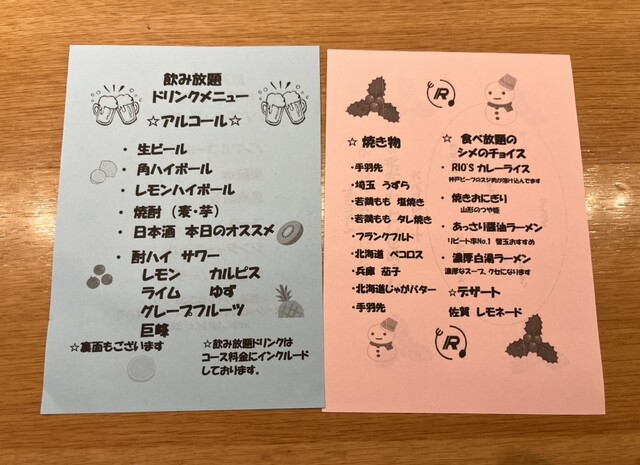 飲み放題
ドリンクメニュー
☆アルコール☆
・生ビール
・角ハイボール
・レモンハイボール
・焼酎（麦・芋）
・日本酒 本日のオススメ
・酎ハイ サワー
レモン カルピス
ライム ゆず
グレープフルーツ
巨峰
☆裏面もございます
☆飲み放題ドリンクは
コース料金にインクルード
しております。
R
☆ 焼き物
・手羽先
・埼玉 うずら
・若鶏もも 塩焼き
・若鶏もも タレ焼き
・フランクフルト
・北海道 ペコロス
・兵庫 茄子
・北海道じゃがバター
・手羽先
☆ 食べ放題の
シメのチョイス
・RIO'S カレーライス
神戸ビーフのスジ肉が溶け込んでます
・焼きおにぎり
山形のつや姫
・あっさり醤油ラーメン
リピート率No.1 替玉おすすめ
・濃厚白湯ラーメン
濃厚なスープ、クセになります
☆デザート
佐賀 レモネード
R